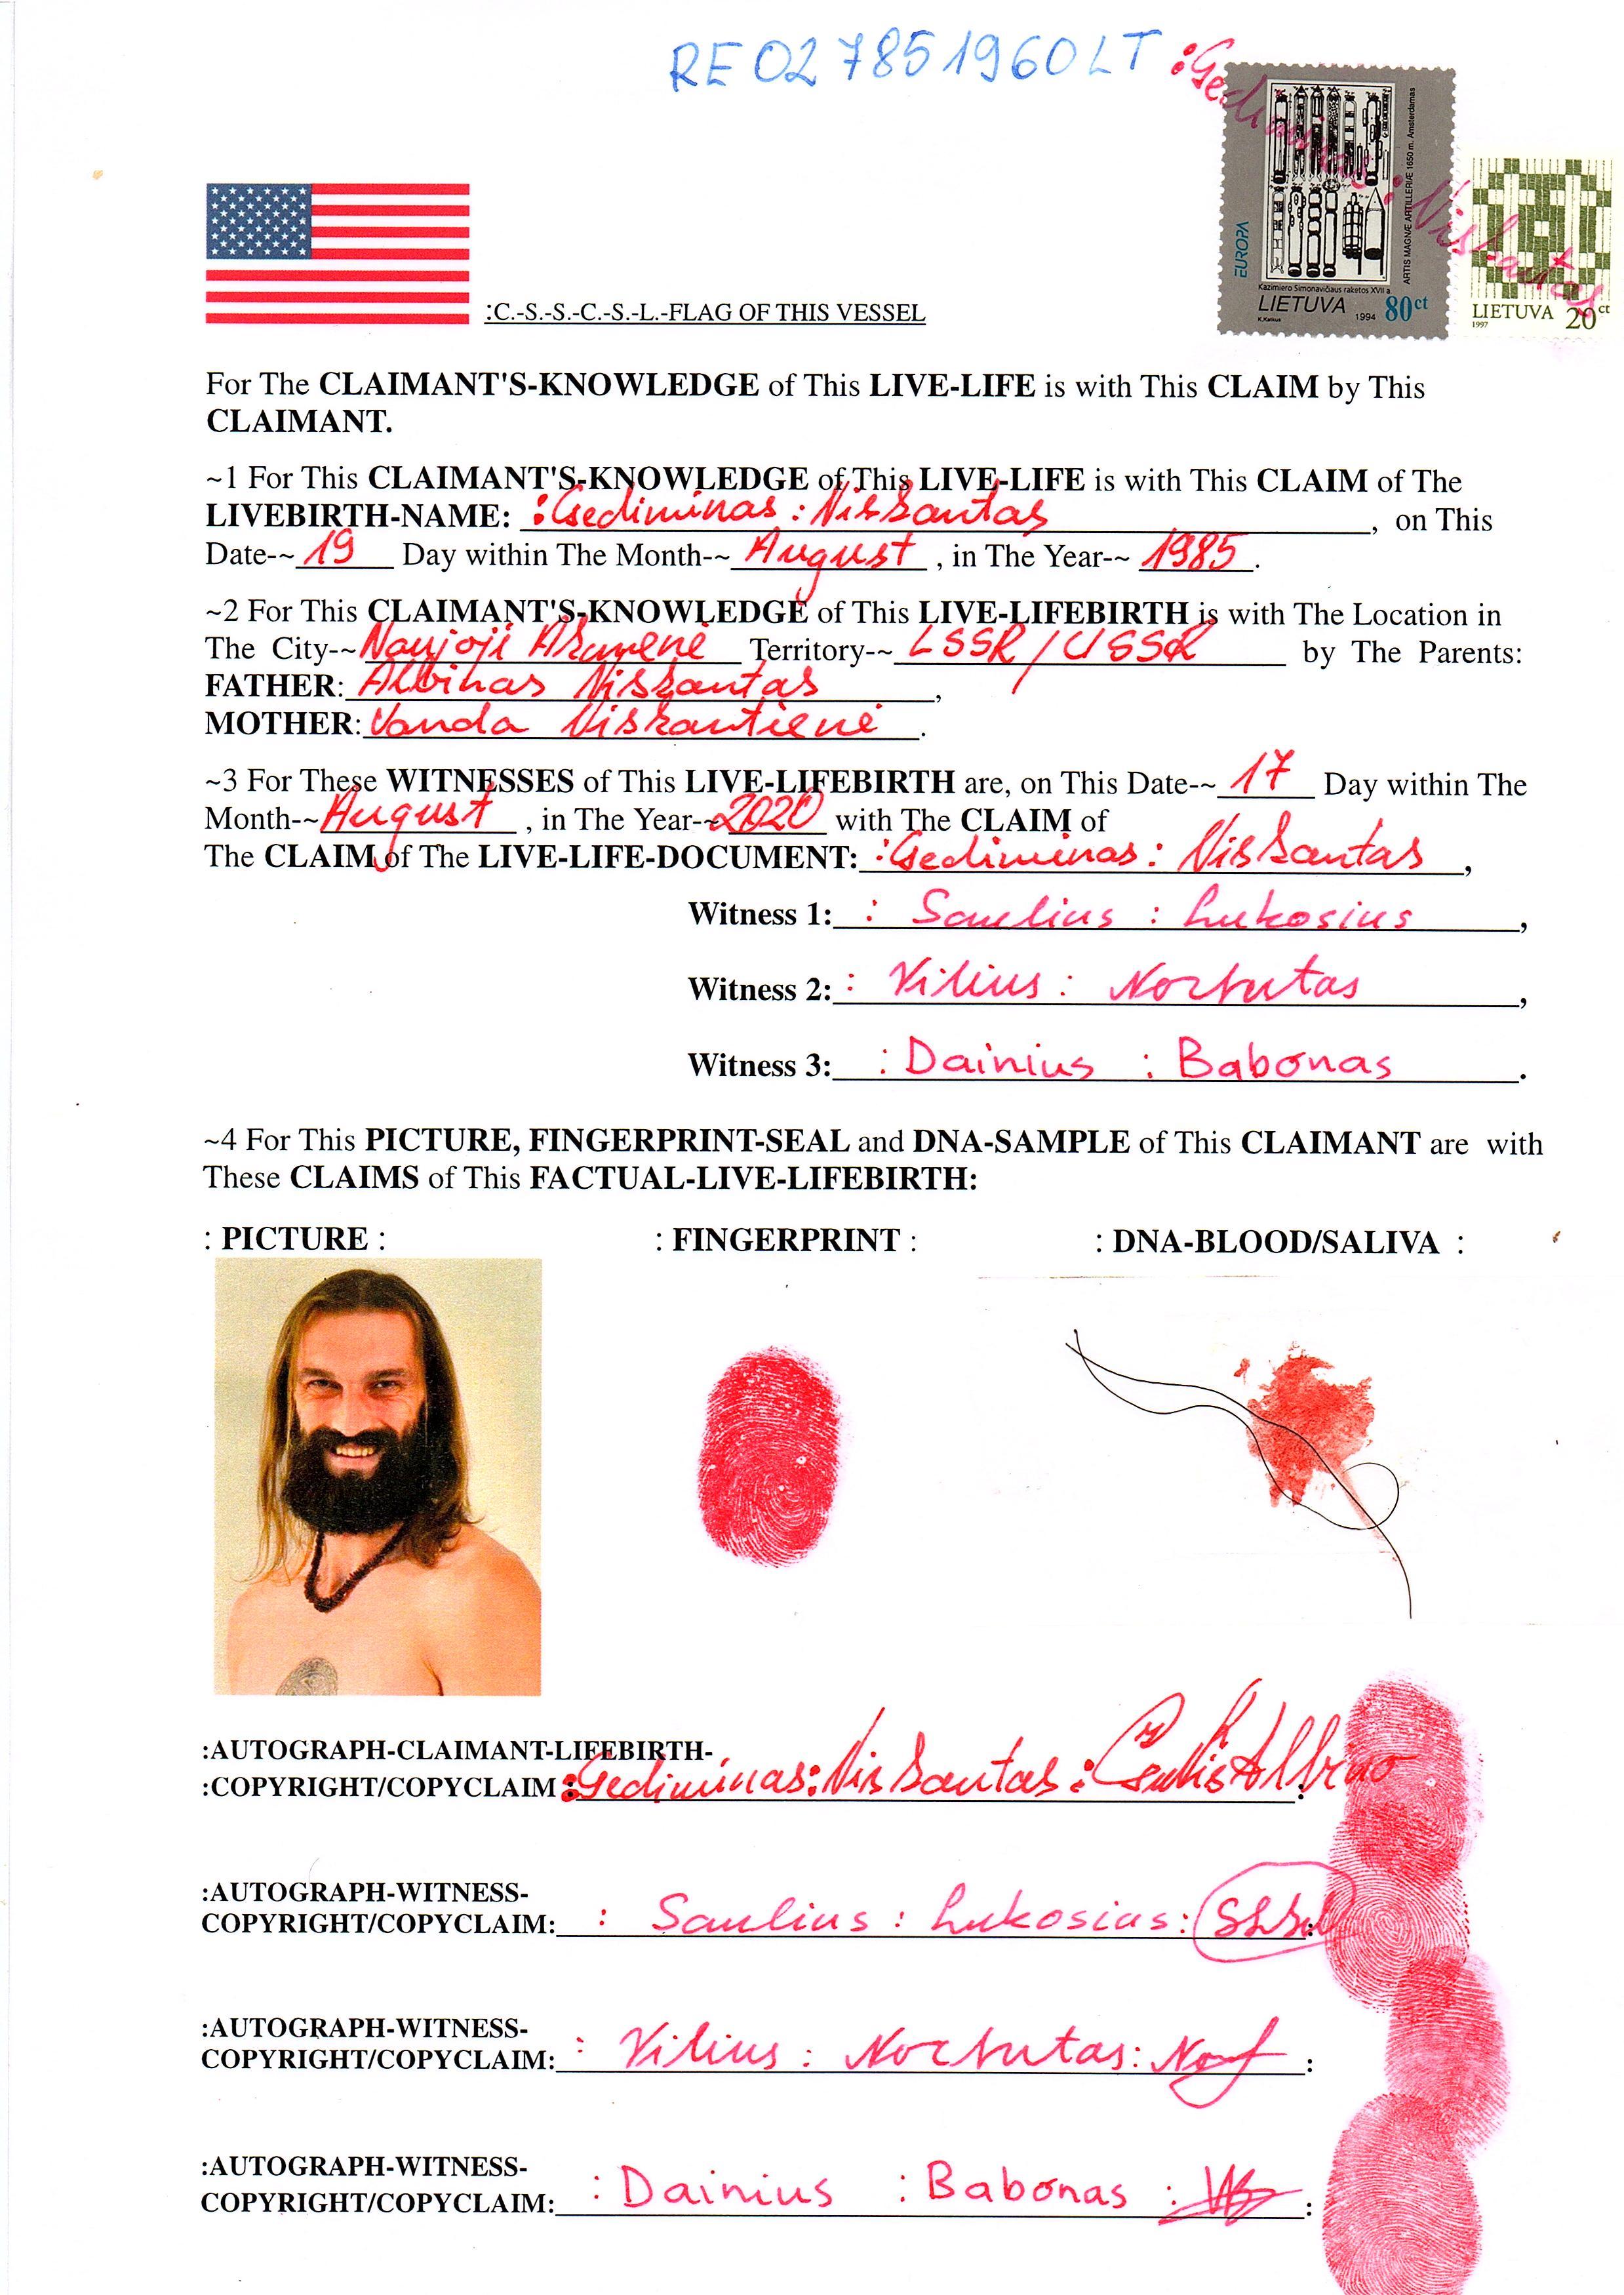 RE027851960LT
:Gediminas :Viskantas
EUROPA
ARTIS MAGNÆ ARTILLERIÆ 1650 m. Amsterdamas
Kazimiero Simonavičiaus raketos XVII a.
LIETUVA 1994 80ct
K.Katkus
LIETUVA 20ct
1997
:C.-S.-S.-C.-S.-L.-FLAG OF THIS VESSEL
For The CLAIMANT'S-KNOWLEDGE of This LIVE-LIFE is with This CLAIM by This
CLAIMANT.
~1 For This CLAIMANT'S-KNOWLEDGE of This LIVE-LIFE is with This CLAIM of The
LIVEBIRTH-NAME: :Gediminas :Viskantas, on This
Date-~ 19 Day within The Month-~ August , in The Year-~ 1985.
~2 For This CLAIMANT'S-KNOWLEDGE of This LIVE-LIFEBIRTH is with The Location in
The City-~ Naujoji Akmenė Territory-~ LSSR/USSR by The Parents:
FATHER: Albinas Viskantas,
MOTHER: Vanda Viskantienė.
~3 For These WITNESSES of This LIVE-LIFEBIRTH are, on This Date-~ 17 Day within The
Month-~ August , in The Year-~ 2020 with The CLAIM of
The CLAIM of The LIVE-LIFE-DOCUMENT: :Gediminas: Viskantas,
Witness 1: : Saulius : Lukosius,
Witness 2: : Vilius : Norbutas,
Witness 3: : Dainius : Babonas.
~4 For This PICTURE, FINGERPRINT-SEAL and DNA-SAMPLE of This CLAIMANT are with
These CLAIMS of This FACTUAL-LIVE-LIFEBIRTH:
: PICTURE : : FINGERPRINT : : DNA-BLOOD/SALIVA :
:AUTOGRAPH-CLAIMANT-LIFEBIRTH-
:COPYRIGHT/COPYCLAIM :Gediminas:Viskantas:
:AUTOGRAPH-WITNESS-
COPYRIGHT/COPYCLAIM: : Saulius : Lukosius:
:AUTOGRAPH-WITNESS-
COPYRIGHT/COPYCLAIM: : Vilius : Norbutas:
:AUTOGRAPH-WITNESS-
COPYRIGHT/COPYCLAIM: : Dainius : Babonas :